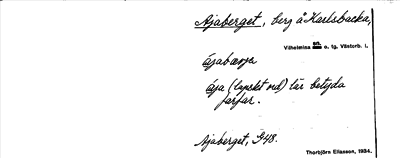 Ajaberget, berg å Karlsbacka,
Vilhelmina sn. o. tg. Västerb. l.
àjabærjə
àja (lapskt ord) lär betyda
farfar.
Ajaberget, G48.
Thorbjörn Eliasson, 1934.